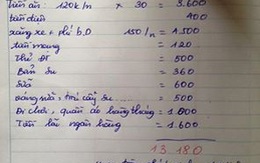 Tiền ăn: 120k/n × 30 = 3.600
tiền điện 400
xăng xe + phí b.D 150/n = 4.500
tiền mạng = 120
Thử ĐT = 500
Bỉm su = 360
Sữa = 600
Váng sữa, trái cây su... = 500
Đi chơi, quần áo hàng tháng: 1.000
Tiền lãi ngân hàng = 1.600
13.180